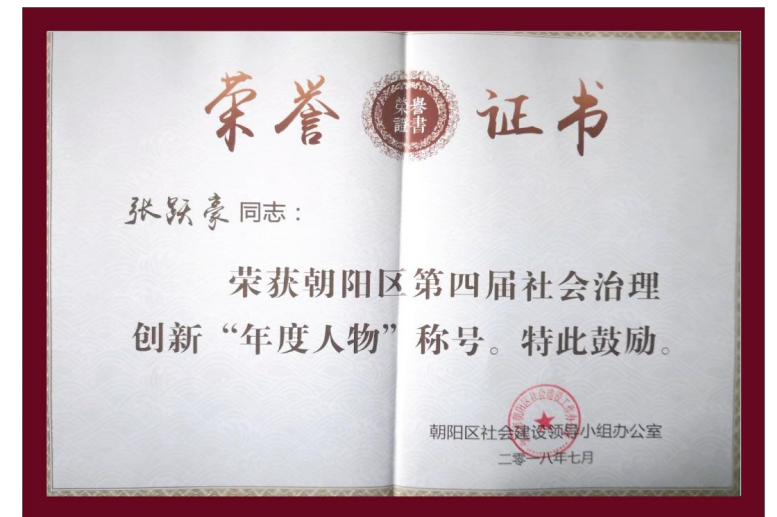 荣誉证书
榮譽
證書
张跃豪 同志：
荣获朝阳区第四届社会治理
创新“年度人物”称号。特此鼓励。
朝阳区社会建设领导小组办公室
二零一八年七月